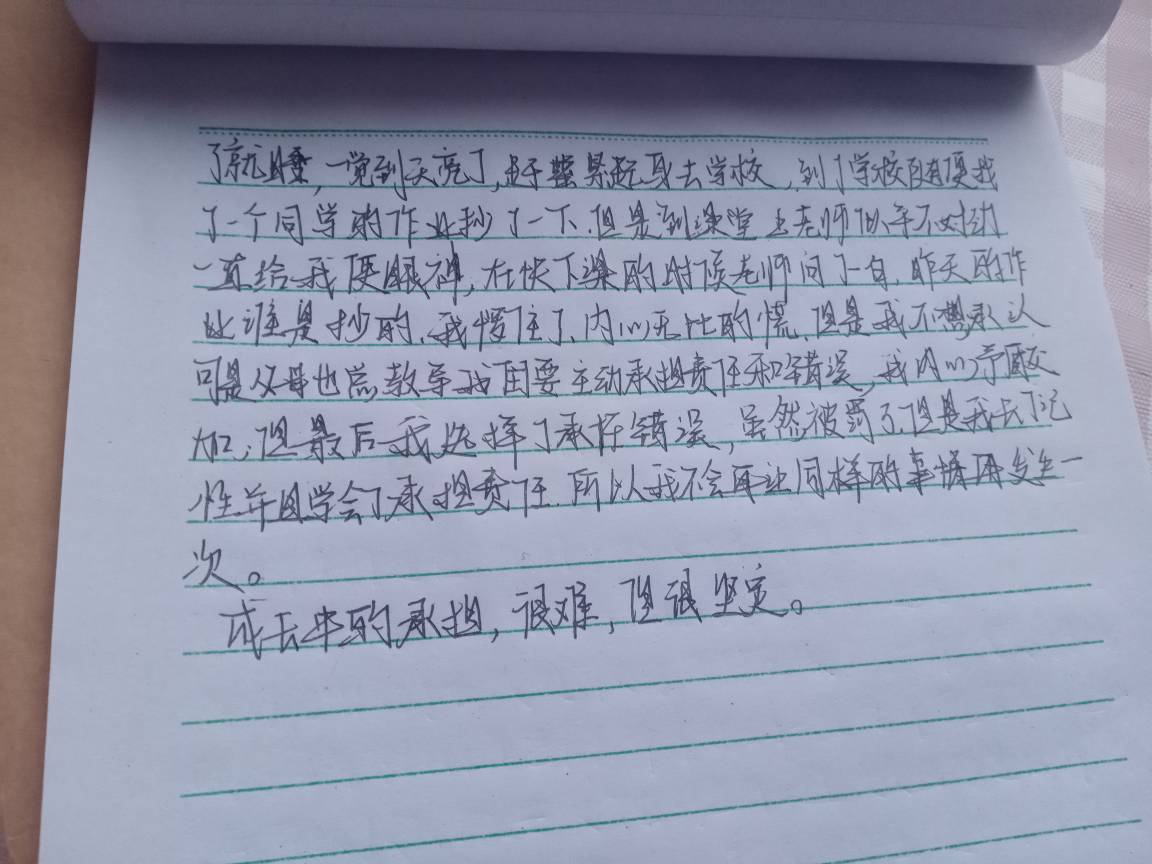 了就睡,一觉到天亮了,起身去学校,到了学校随便找
了一个同学的作业抄了一下.但是到课堂上老师似乎不对劲
一直给我使眼神,在快下课的时候老师问了一句,昨天的作
业谁是抄的,我愣住了,内心无比的慌,但是我不想承认
可是父母也常教导我们要主动承担责任和错误,我内心矛盾交
加,但最后我选择了承担错误,虽然被罚了,但是我长了记
性并且学会了承担责任.所以我不会再让同样的事情再发生一
次。
成长中的承担,很难,但很坚定。